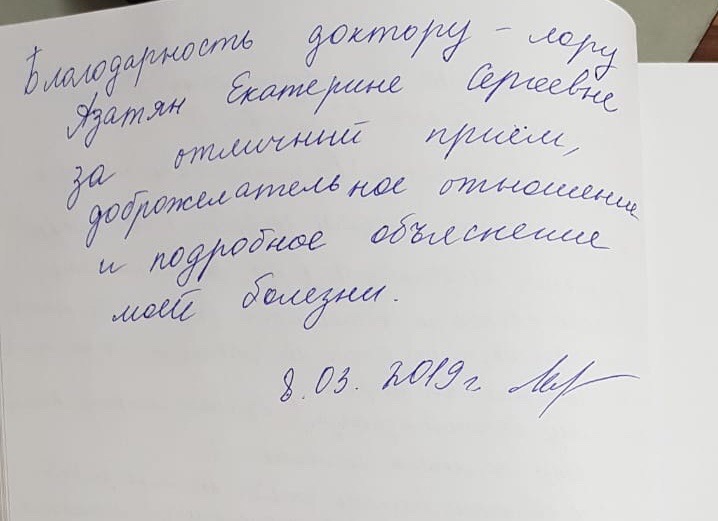 Благодарность доктору - лору
Азатян Екатерине Сергеевне
за отличный приём,
доброжелательное отношение
и подробное объяснение
моей болезни.
8.03.2019г.